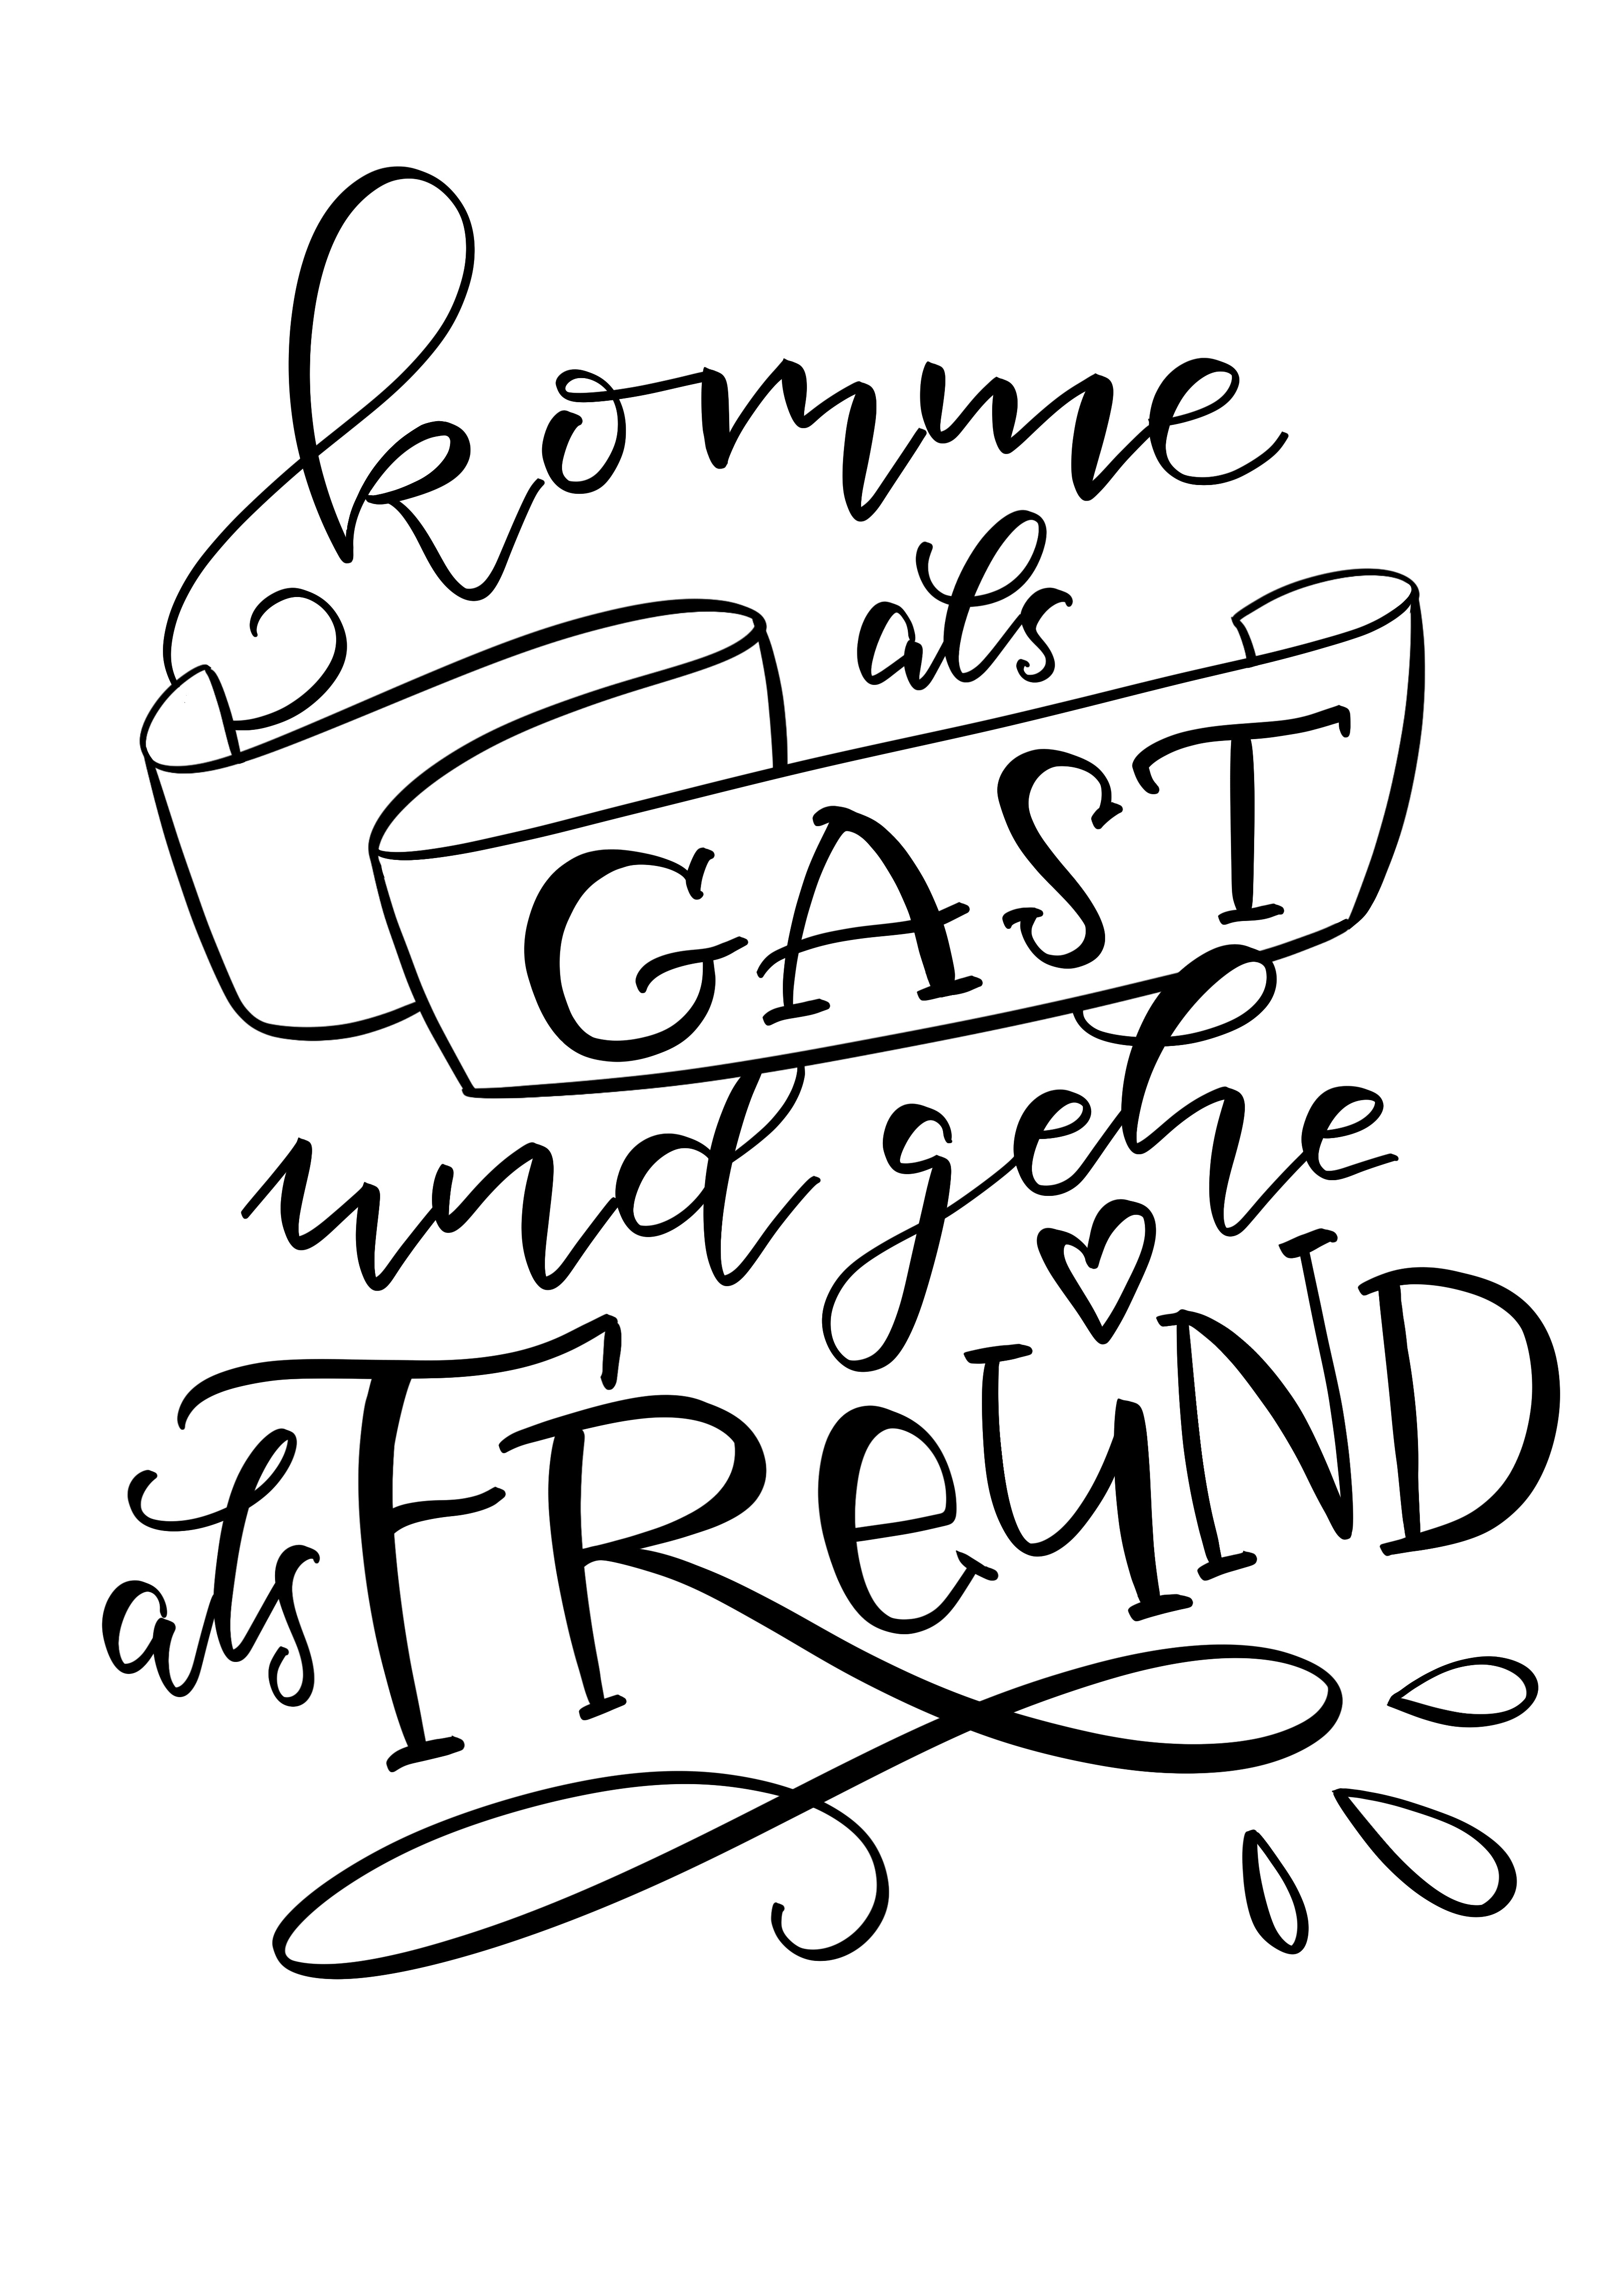 komme
als
GAST
und gehe
als FReuND